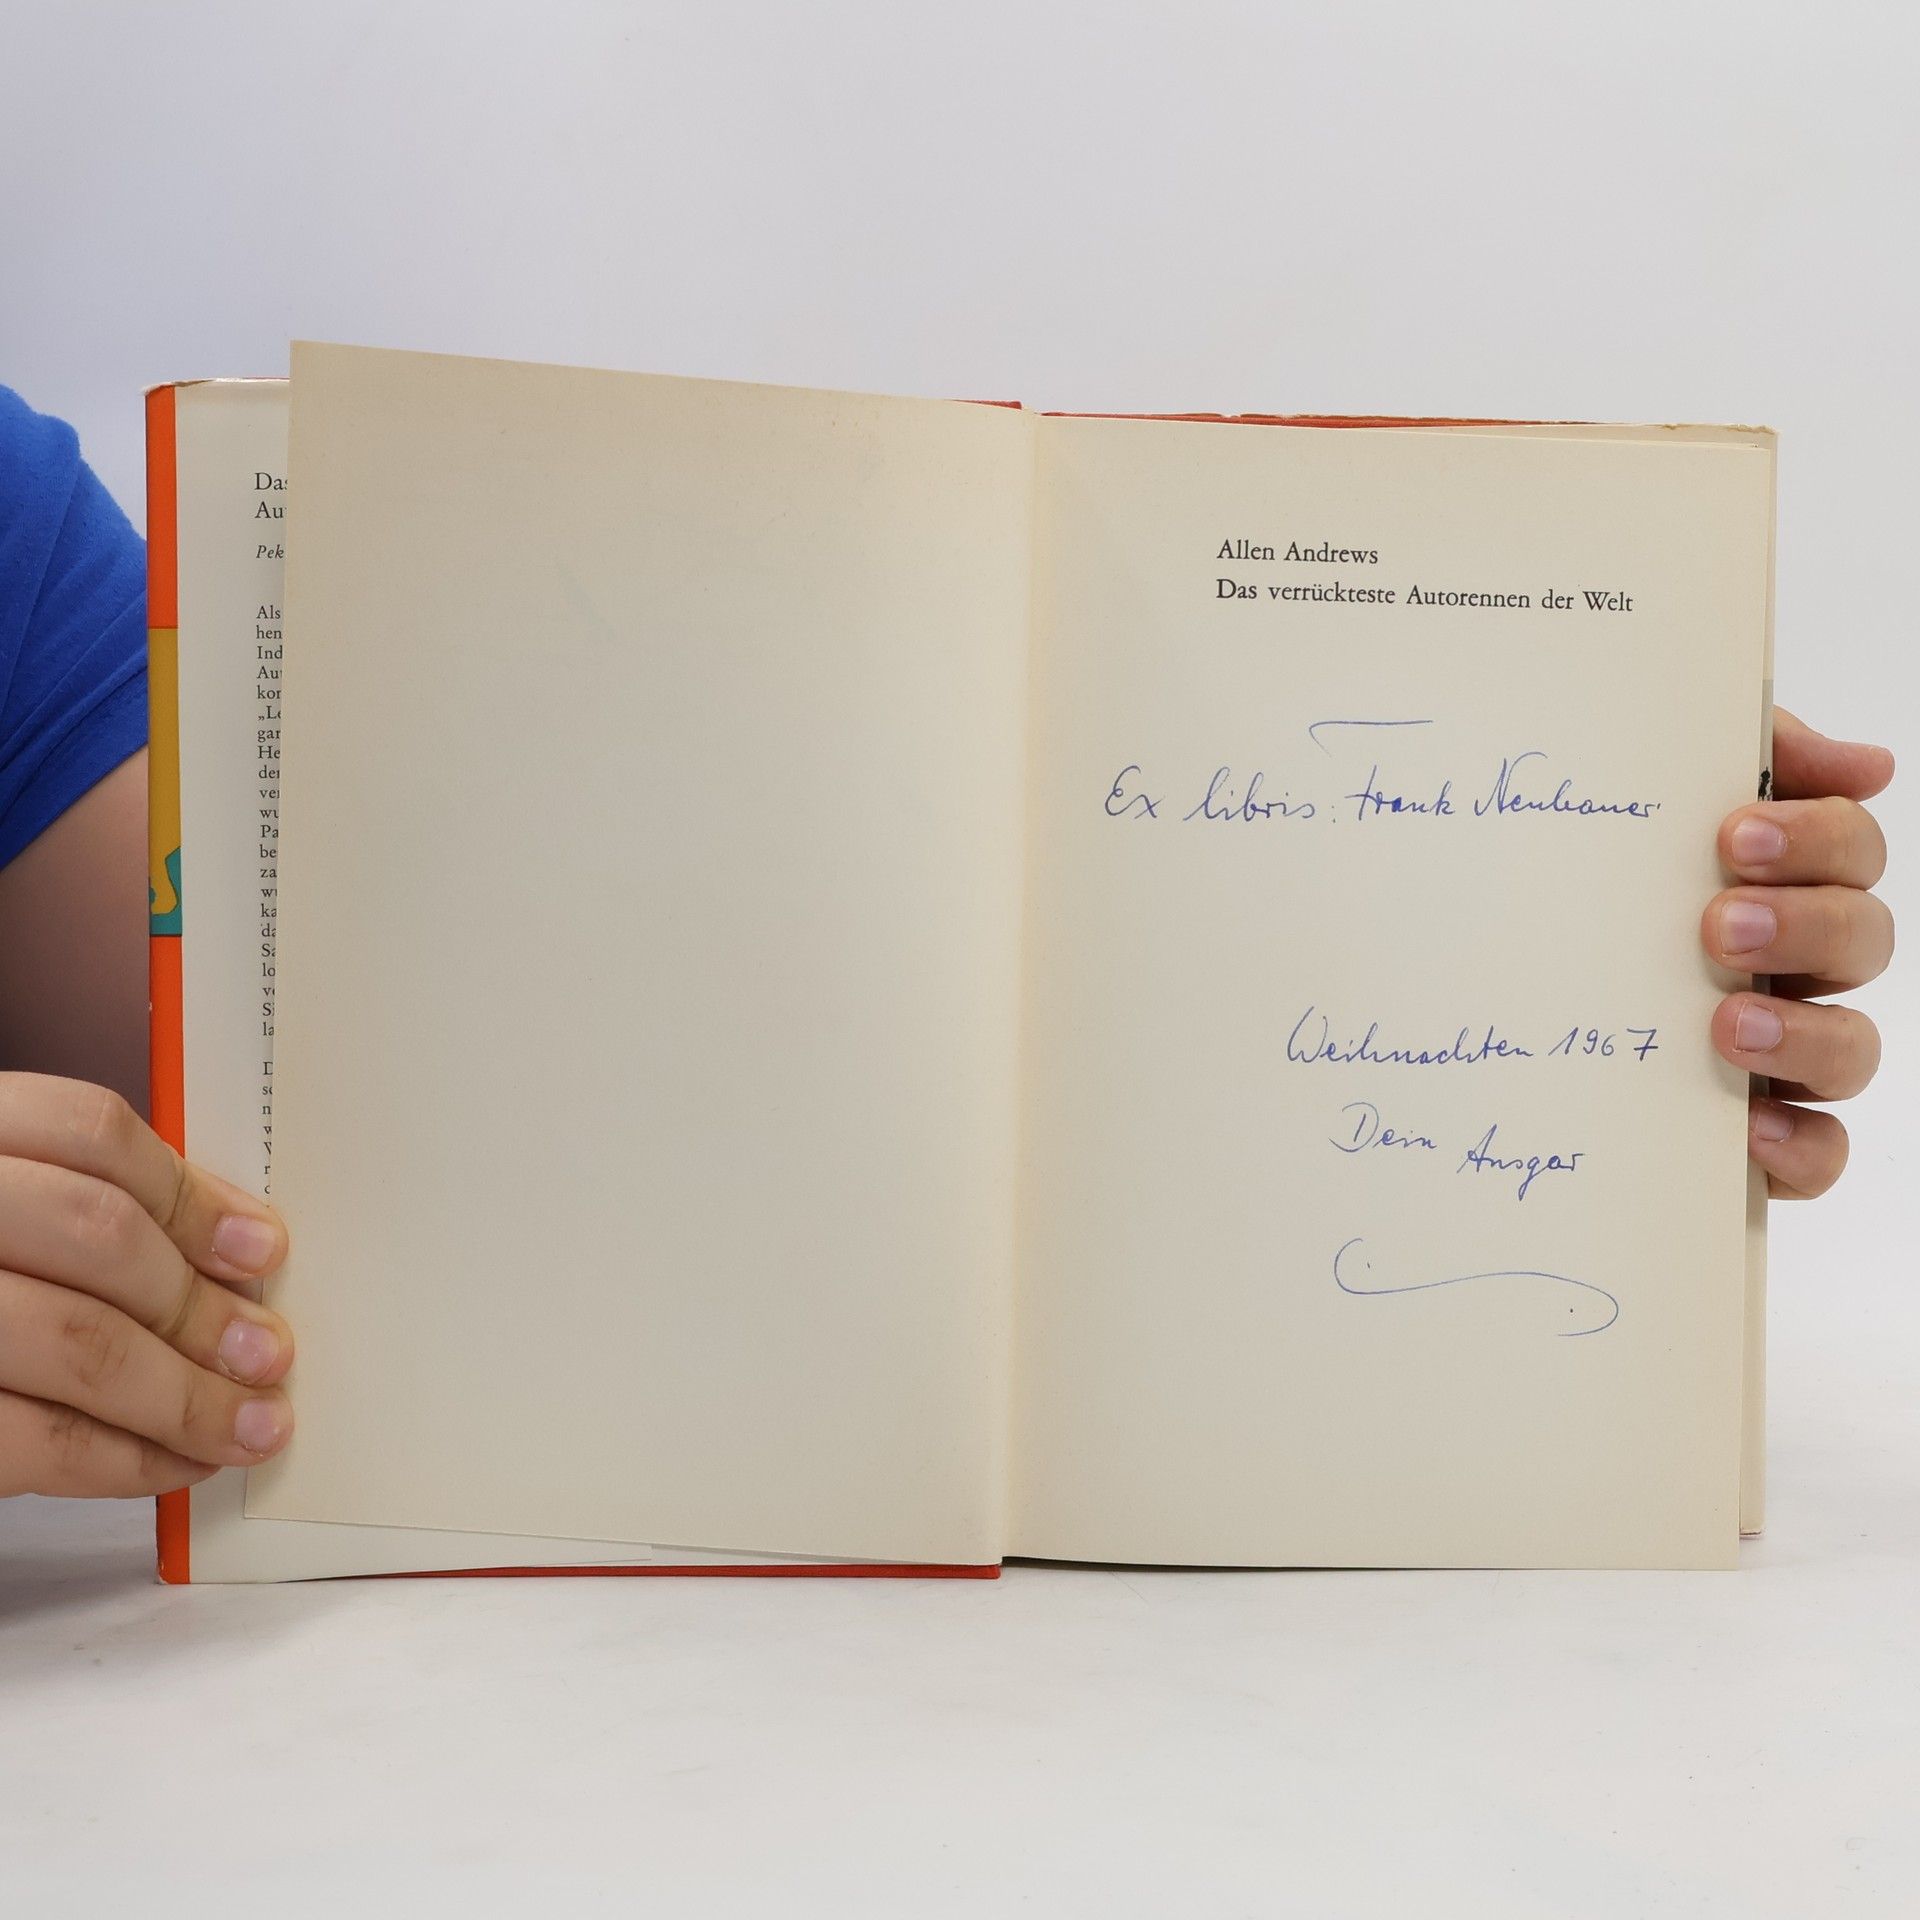 Das
Au
Pek
Als
hen
Ind
Au
kon
„Le
gar
He
der
ver
wu
Pa
be
za
wu
ka
da
Sa
lo
ve
Si
la
D
se
n
w
V
r
d
Allen Andrews
Das verrückteste Autorennen der Welt
Ex libris: Frank Neubauer
Weihnachten 1967
Dein Ansgar